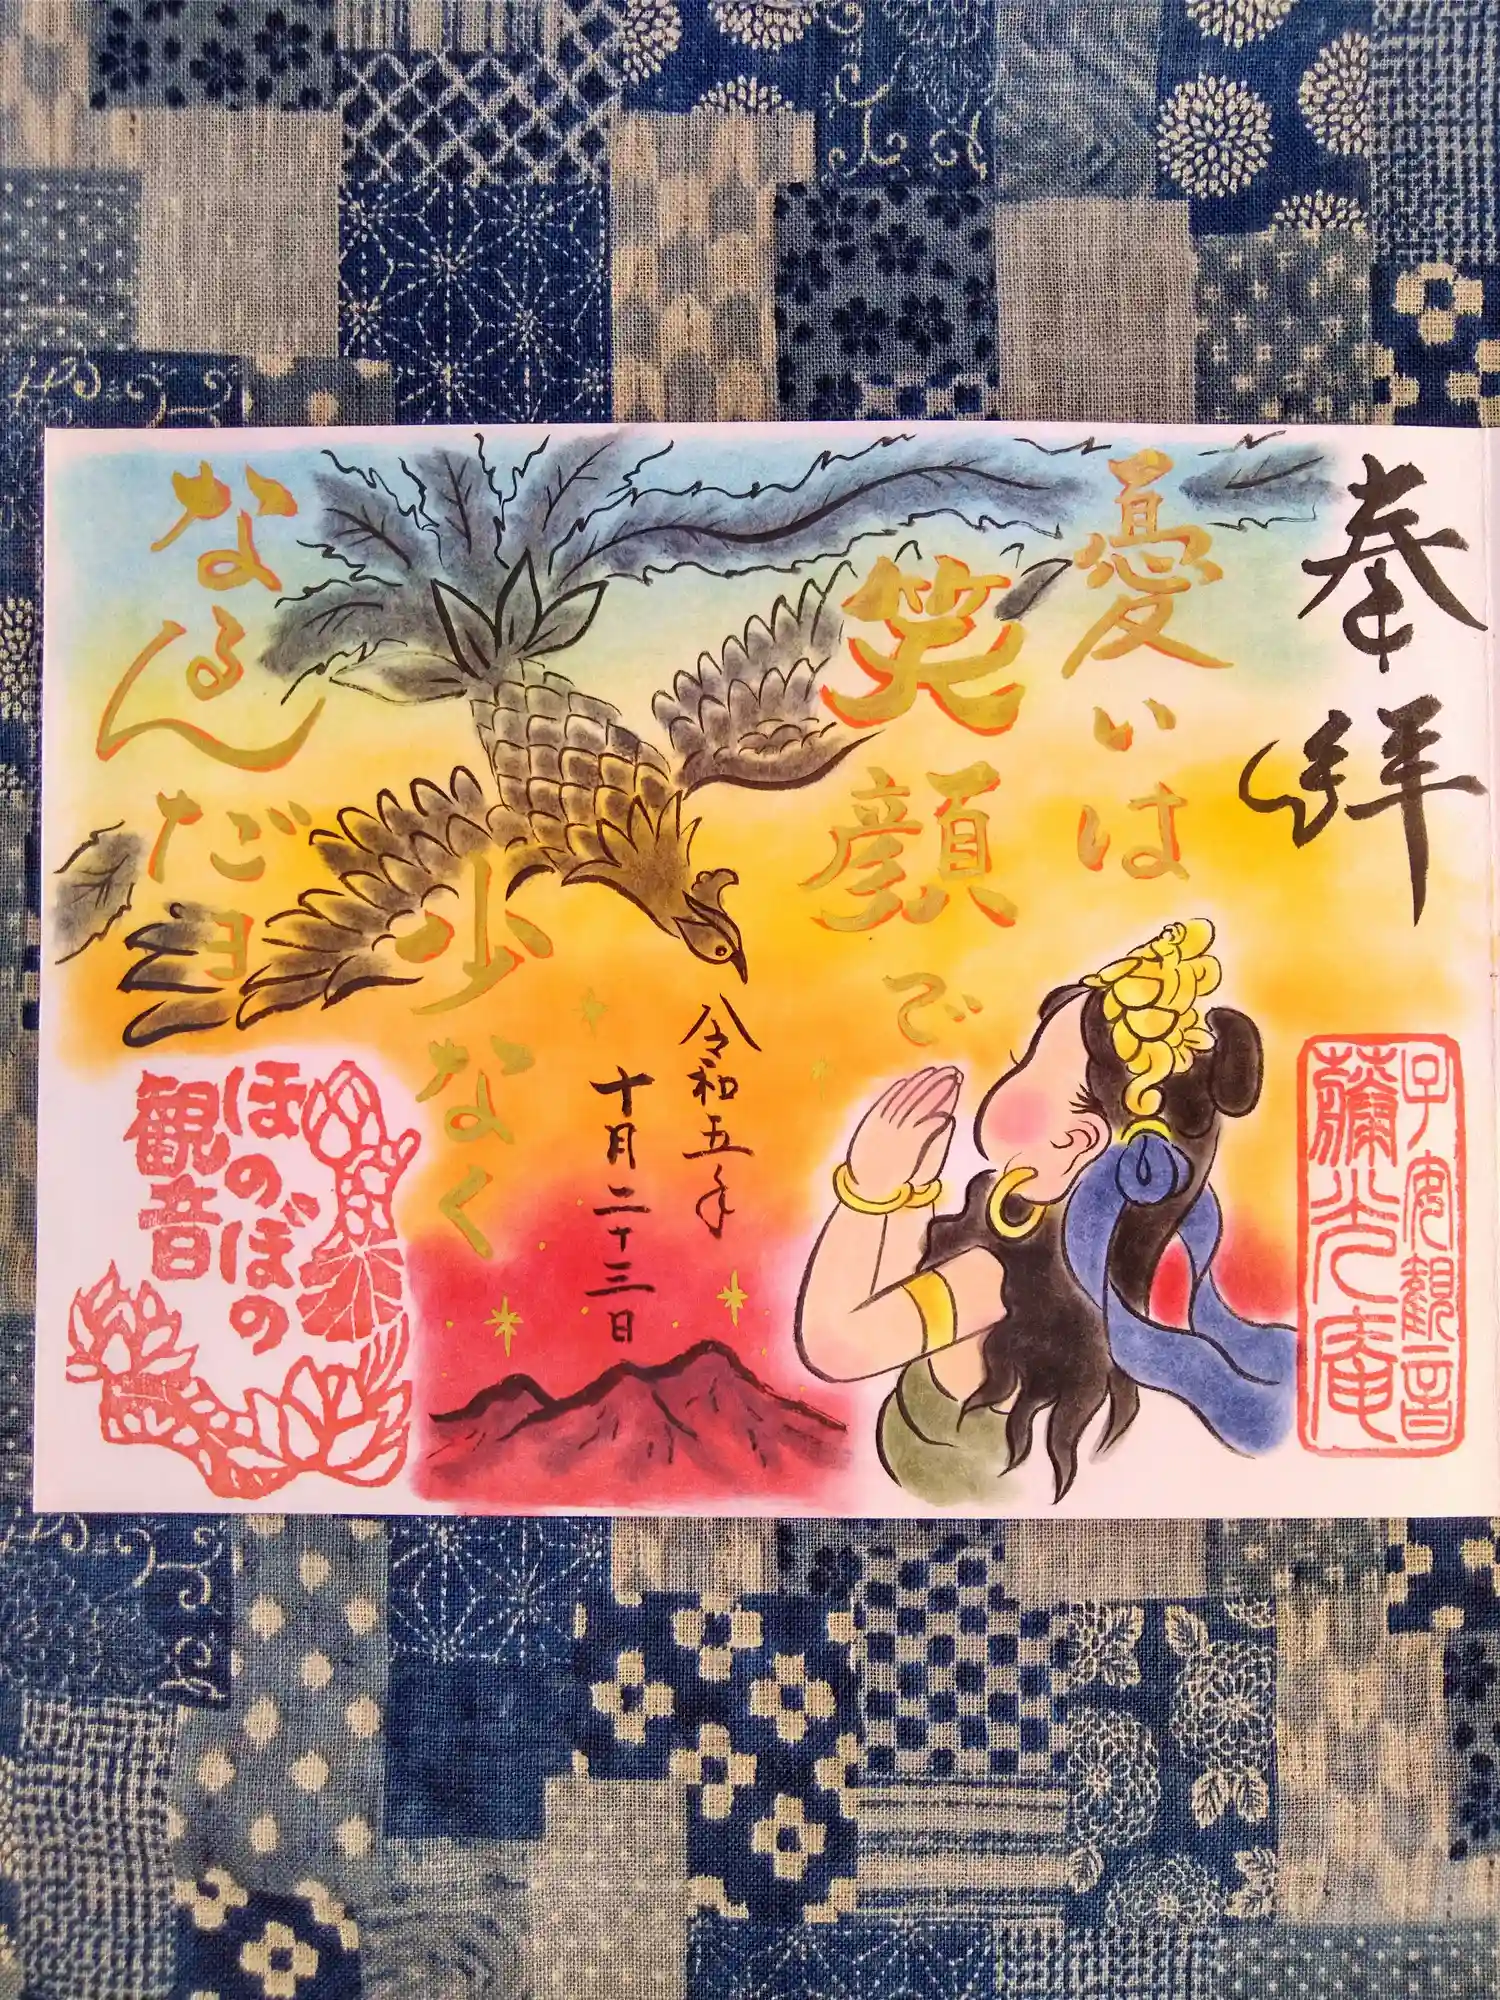 奉拝
憂いは
笑顔で
少なく
なるんだヨ
令和五年
十月二十三日
子安観音
彌光庵
ほのぼの
観音